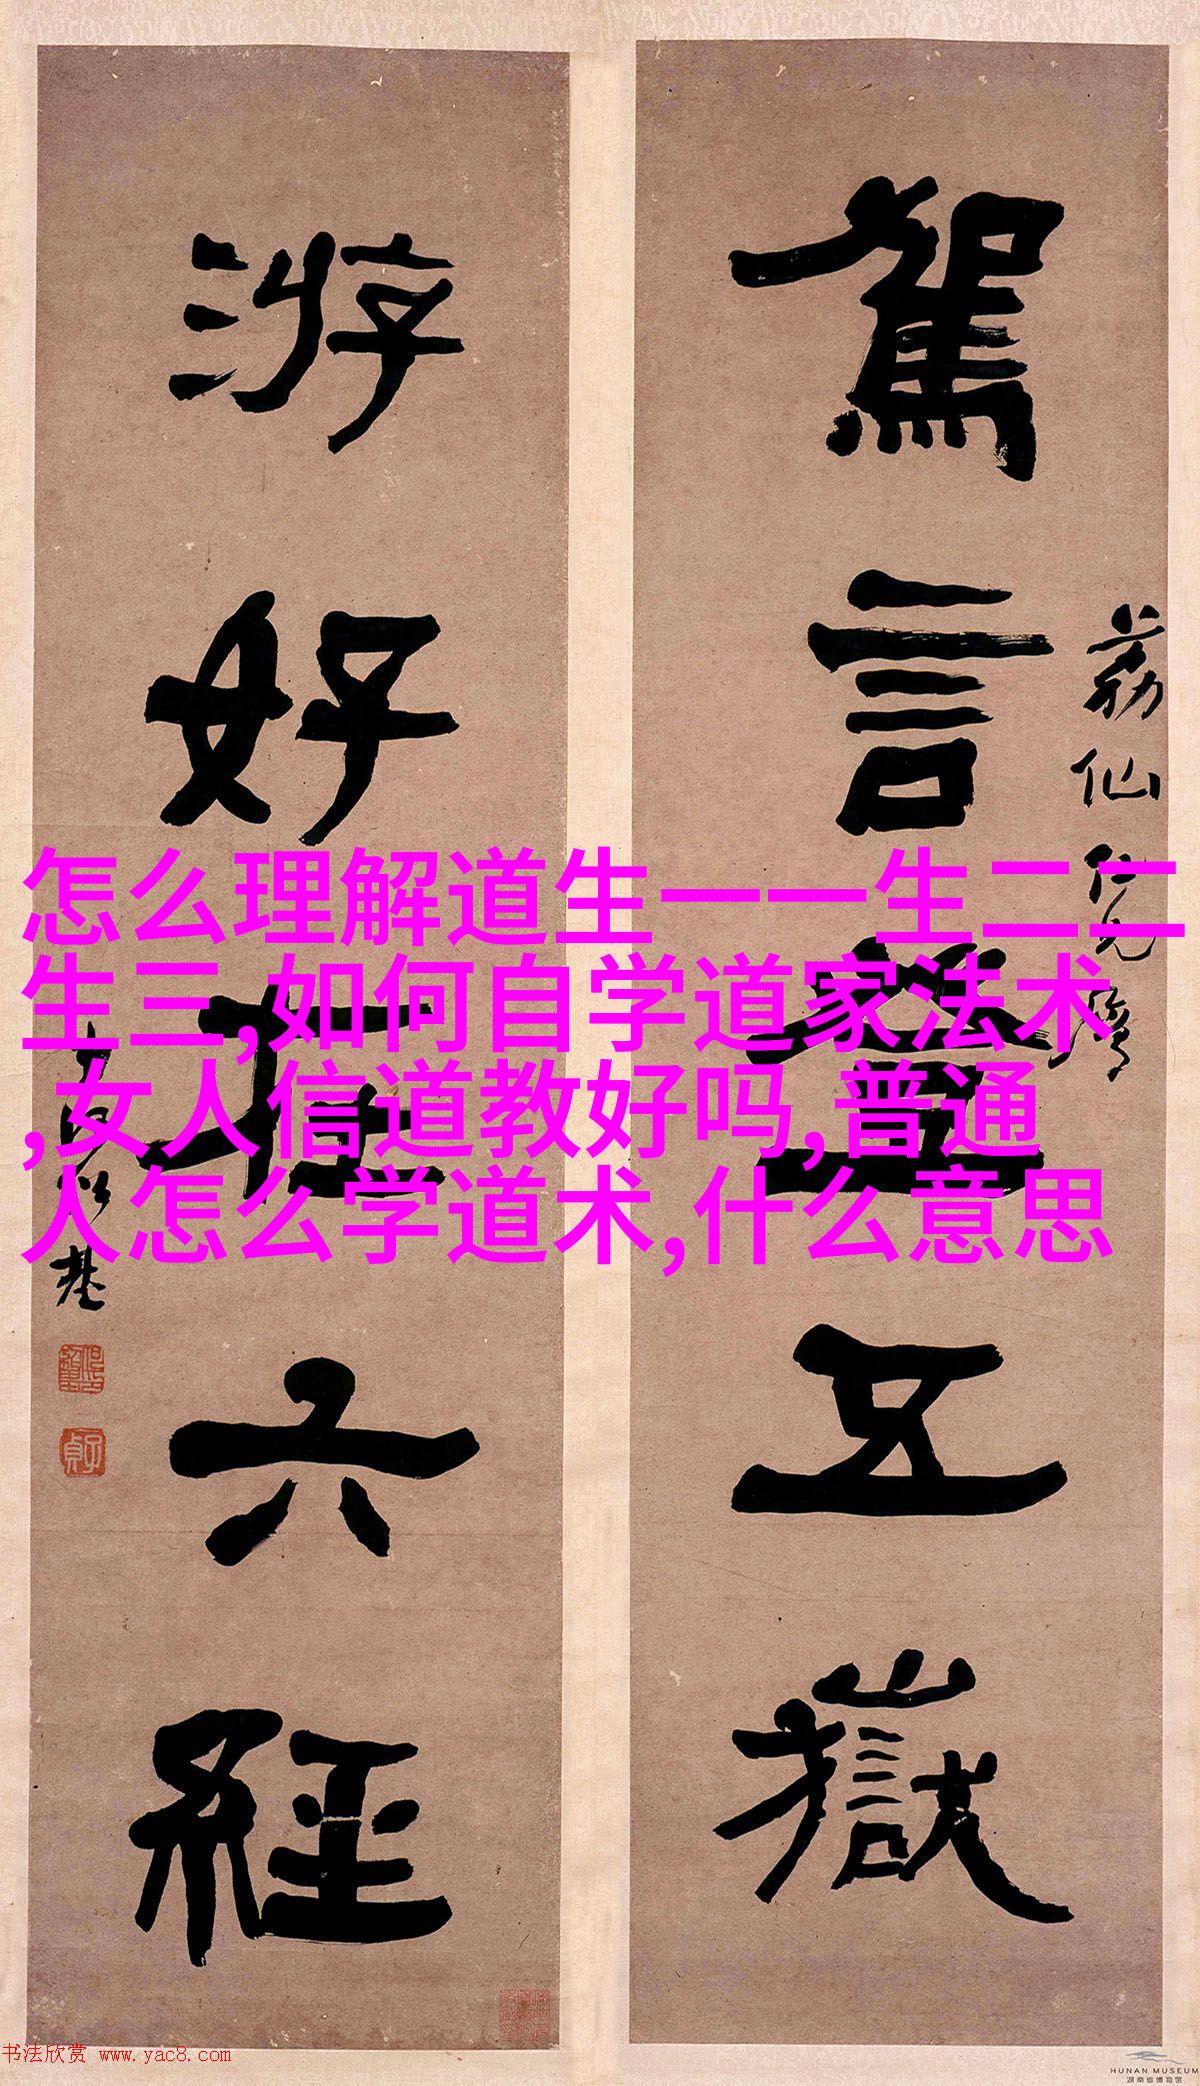 驾言登五嶽
荔仙仁兄
游好在六經
何紹基
子貞
怎么理解道生一一生二二
生三,如何自学道家法术
,女人信道教好吗,普通
人怎么学道术,什么意思
书法欣赏 www.yac8.com
HUNAN MUSEUM
湖南省博物馆